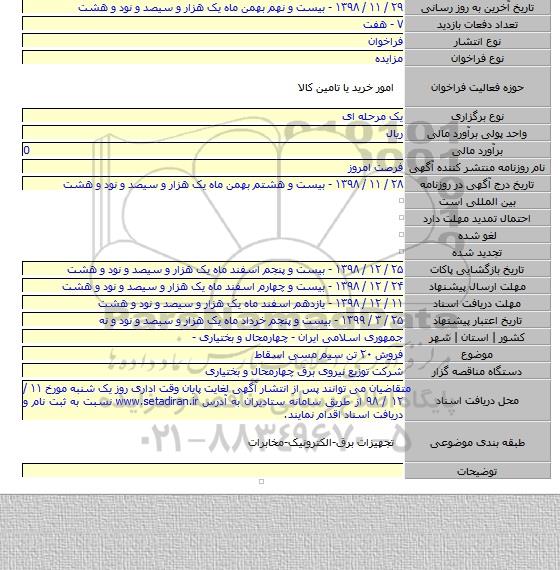 تاریخ آخرین به روز رسانی ۲۹ / ۱۱ / ۱۳۹۸ - بیست و نهم بهمن ماه یک هزار و سیصد و نود و هشت
تعداد دفعات بازدید ۷ - هفت
نوع انتشار فراخوان
نوع فراخوان مزایده
حوزه فعالیت فراخوان امور خرید یا تامین کالا
نوع برگزاری یک مرحله ای
واحد پولی برآورد مالی ریال
برآورد مالی 0
نام روزنامه منتشر کننده آگهی فرصت امروز
تاریخ درج آگهی در روزنامه ۲۸ / ۱۱ / ۱۳۹۸ - بیست و هشتم بهمن ماه یک هزار و سیصد و نود و هشت
بین المللی است
احتمال تمدید مهلت دارد
لغو شده
تجدید شده
تاریخ بازگشایی پاکات ۲۵ / ۱۲ / ۱۳۹۸ - بیست و پنجم اسفند ماه یک هزار و سیصد و نود و هشت
مهلت ارسال پیشنهاد ۲۴ / ۱۲ / ۱۳۹۸ - بیست و چهارم اسفند ماه یک هزار و سیصد و نود و هشت
مهلت دریافت اسناد ۱۱ / ۱۲ / ۱۳۹۸ - یازدهم اسفند ماه یک هزار و سیصد و نود و هشت
تاریخ اعتبار پیشنهاد ۲۵ / ۳ / ۱۳۹۹ - بیست و پنجم خرداد ماه یک هزار و سیصد و نود و نه
کشور | استان | شهر جمهوری اسلامی ایران - چهارمحال و بختیاری -
موضوع فروش ۲۰ تن سیم مسی اسقاط
دستگاه مناقصه گزار شرکت توزیع نیروی برق چهارمحال و بختیاری
محل دریافت اسناد متقاضیان می توانند پس از انتشار آگهی لغایت پایان وقت اداری روز یک شنبه مورخ ۱۱ /
۱۲ / ۹۸ از طریق سامانه ستادیران به آدرس www.setadiran.ir نسبت به ثبت نام و
دریافت اسناد اقدام نمایند.
طبقه بندی موضوعی تجهیزات برق-الکترونیک-مخابرات
توضیحات
۰۲۱-۸۸۳۴۹۶۷۰-۵